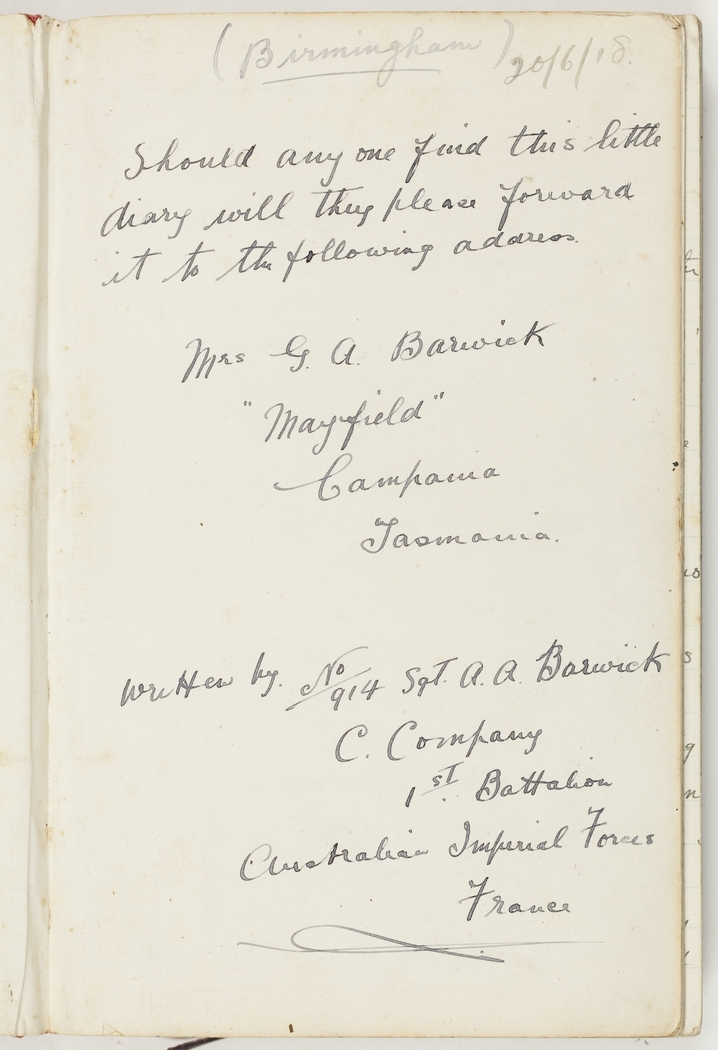 (Birmingham) 20/6/18.
Should any one find this little
diary will they please forward
it to the following address.
Mrs G. A. Barwick
"Mayfield"
Campania
Tasmania.
Written by. No 914 Sgt. A. A. Barwick
C. Company
1st Battalion
Australian Imperial Forces
France